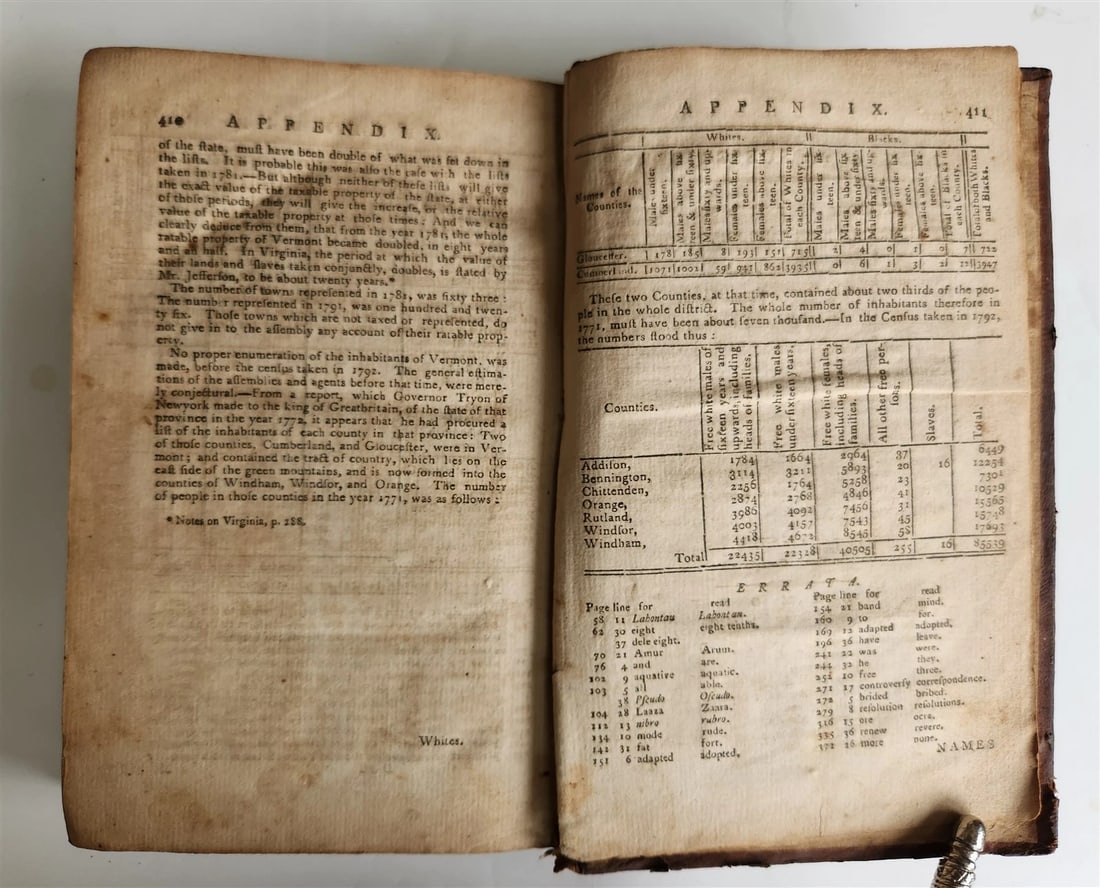 410 APPENDIX.
of the ſtate, muſt have been double of what was ſet down in
the liſts. It is probable this was alſo the caſe with the liſts
taken in 1781.—But although neither of theſe liſts will give
the exact value of the taxable property of the ſtate, at either
of thoſe periods, they will give the increaſe, or the relative
value of the taxable property at thoſe times: And we can
clearly deduce from them, that from the year 1781, the whole
ratable property of Vermont became doubled, in eight years
and an half. In Virginia, the period at which the value of
their lands and ſlaves taken conjunctly, doubles, is ſtated by
Mr. Jefferſon, to be about twenty years.*
The number of towns repreſented in 1781, was ſixty three:
The number repreſented in 1791, was one hundred and twen-
ty ſix. Thoſe towns which are not taxed or repreſented, do
not give in to the aſſembly any account of their ratable prop-
erty.
No proper enumeration of the inhabitants of Vermont, was
made, before the cenſus taken in 1792. The general eſtima-
tions of the aſſemblies and agents before that time, were mere-
ly conjectural.—From a report, which Governor Tryon of
Newyork made to the king of Greatbritain, of the ſtate of that
province in the year 1772, it appears that he had procured a
liſt of the inhabitants of each county in that province: Two
of thoſe counties, Cumberland, and Glouceſter, were in Ver-
mont; and contained the tract of country, which lies on the
eaſt ſide of the green mountains, and is now formed into the
counties of Windham, Windſor, and Orange. The number
of people in thoſe counties in the year 1771, was as follows:
* Notes on Virginia, p. 288.
Whites.
APPENDIX. 411
Whites. Blacks.
Names of the Counties.
Males under ſixteen.
Males above ſixteen & under ſixty.
Males ſixty and upwards.
Females under ſixteen.
Females above ſixteen.
Total of Whites in each County.
Males under ſixteen.
Males above ſixteen & under ſixty.
Males ſixty and upwards.
Females under ſixteen.
Females above ſixteen.
Total of Blacks in each County.
Total of both Whites and Blacks.
Glouceſter. 178 185 8 193 151 715 2 4 0 1 0 7 722
Cumberland. 1071 1002 59 941 862 3935 0 6 1 3 2 12 3947
Theſe two Counties, at that time, contained about two thirds of the peo-
ple in the whole diſtrict. The whole number of inhabitants therefore in
1771, muſt have been about ſeven thouſand.—In the Cenſus taken in 1792,
the numbers ſtood thus:
Counties.
Free white males of ſixteen years and upwards, including heads of families.
Free white males under ſixteen years.
Free white females, including heads of families.
All other free perſons.
Slaves.
Total.
Addiſon, 1784 1664 2964 37 6449
Bennington, 3114 3211 5893 20 16 12254
Chittenden, 2256 1764 3258 23 7301
Orange, 2874 2768 4846 41 10529
Rutland, 3986 4092 7456 31 15565
Windſor, 4003 4157 7543 45 15748
Windham, 4418 4672 8545 58 17693
Total 22435 22328 40505 255 16 85539
ERRATA.
Page line for read Page line for read
58 11 Lahontau Lahontan. 154 21 band mind.
62 30 eight eight tenths. 160 9 to for.
37 dele eight. 169 12 adapted adopted.
70 21 Amur Arum. 196 36 have leave.
76 4 and are. 241 22 was were.
102 9 aquative aquatic. 244 32 he they.
103 5 all alba. 252 10 free three.
38 Pſcudo Oſcudo. 271 17 controverſy correſpondence.
104 28 Laaza Zaara. 272 5 brided bribed.
112 13 nibro rubro. 279 8 reſolution reſolutions.
134 10 mode rude. 316 15 ore ocra.
142 31 fat fort. 335 36 renew revere.
151 6 adapted adopted. 372 26 more none.
NAMES